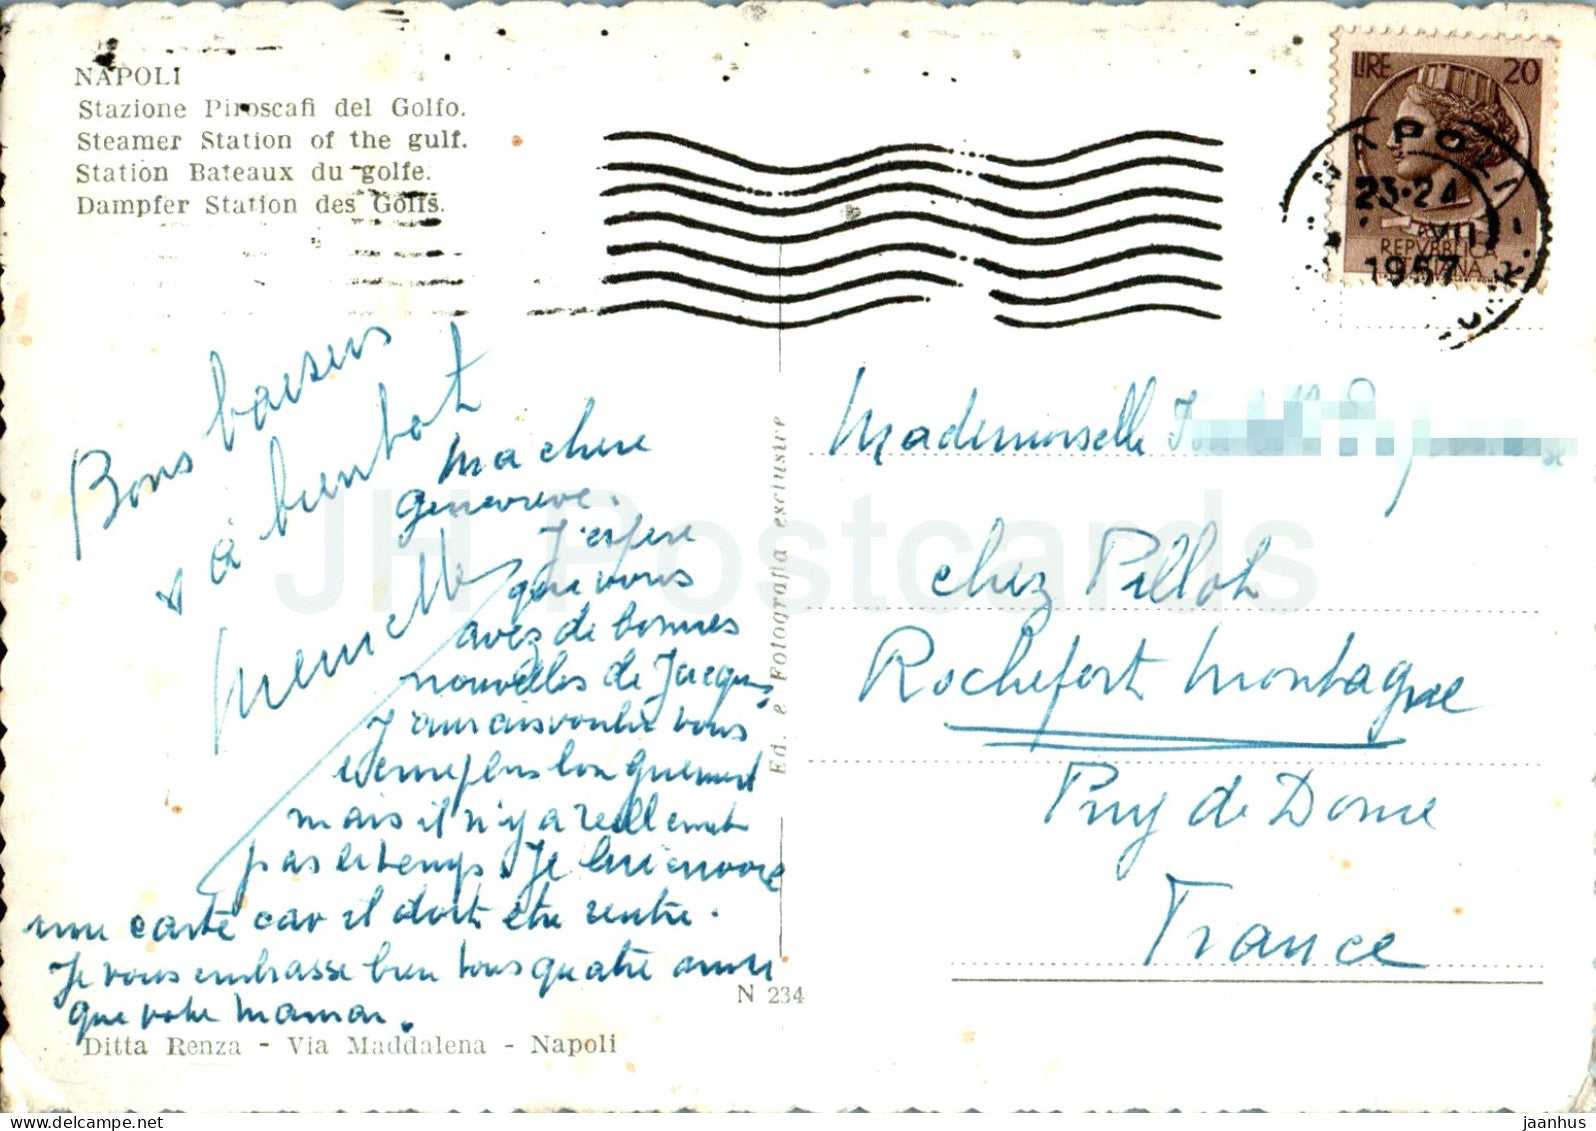 NAPOLI
Stazione Piroscafi del Golfo.
Steamer Station of the gulf.
Station Bateaux du golfe.
Dampfer Station des Golfs.
LIRE 20
REPVBBLICA
ITALIANA
NAPOLI
23-24
VII
1957
Bons baisers
à bientôt
Ma chere
Genevieve.
J'espere
que vous
avez de bonnes
nouvelles de Jacques,
J'aurais voulu vous
ecrire plus longuement
mais il n'y a reellement
pas le temps. Je lui envoie
une carte car il doit être rentré.
Je vous embrasse bien tous quatre ainsi
que votre maman.
Ed. e Fotografia esclusive
Mademoiselle
chez Pillot
Rochefort Montagne
Puy de Dome
France
N 234
Ditta Renza - Via Maddalena - Napoli
JH Postcards
delcampe.net
jaanhus